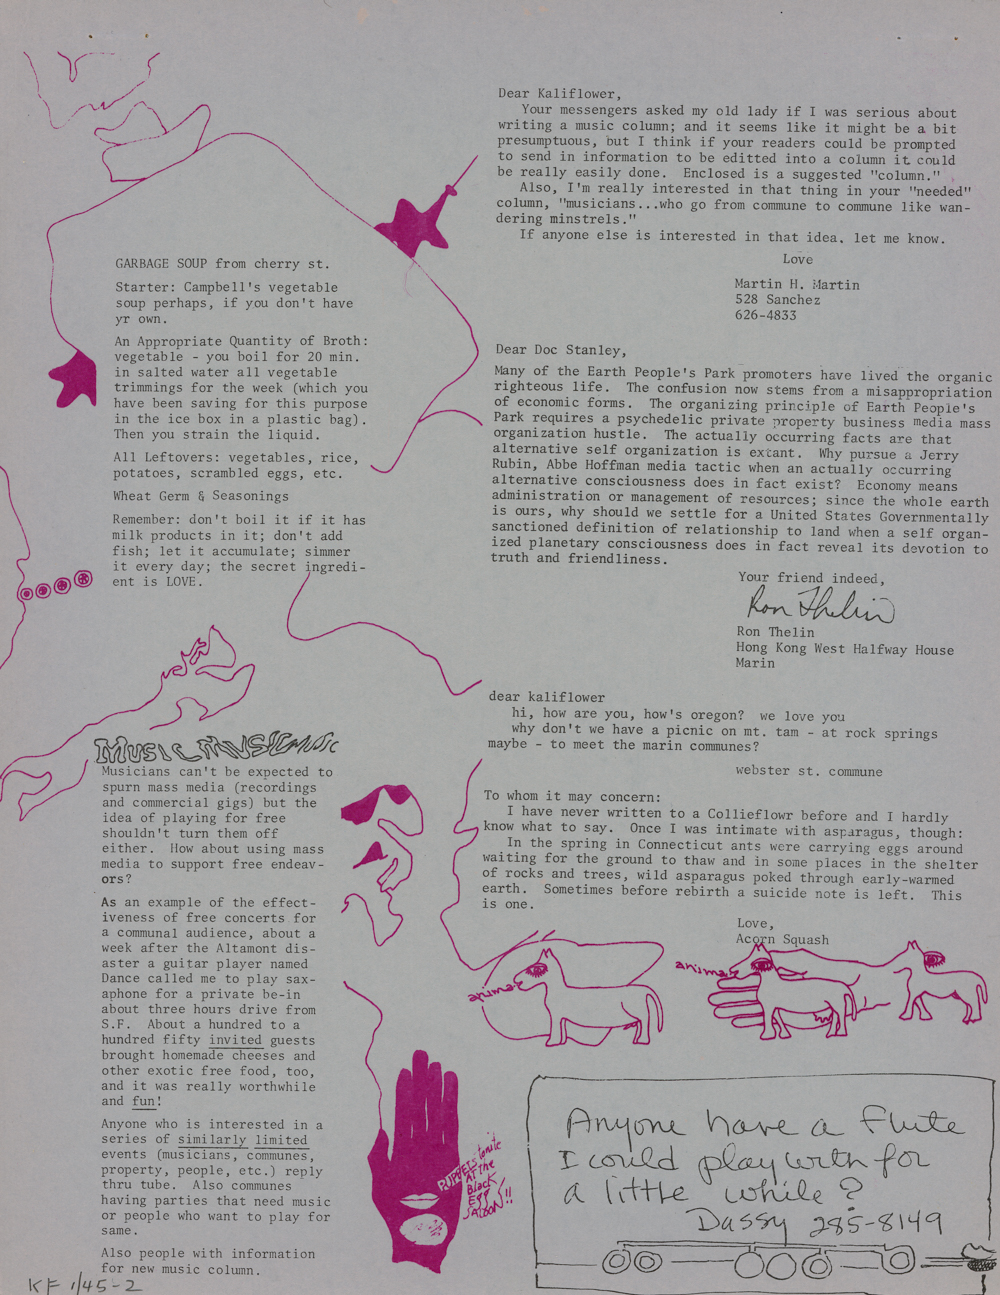 GARBAGE SOUP from cherry st.
Starter: Campbell's vegetable
soup perhaps, if you don't have
yr own.
An Appropriate Quantity of Broth:
vegetable - you boil for 20 min.
in salted water all vegetable
trimmings for the week (which you
have been saving for this purpose
in the ice box in a plastic bag).
Then you strain the liquid.
All Leftovers: vegetables, rice,
potatoes, scrambled eggs, etc.
Wheat Germ & Seasonings
Remember: don't boil it if it has
milk products in it; don't add
fish; let it accumulate; simmer
it every day; the secret ingredi-
ent is LOVE.
MUSIC MUSIC MUSIC
Musicians can't be expected to
spurn mass media (recordings
and commercial gigs) but the
idea of playing for free
shouldn't turn them off
either.  How about using mass
media to support free endeav-
ors?
As an example of the effect-
iveness of free concerts for
a communal audience, about a
week after the Altamont dis-
aster a guitar player named
Dance called me to play sax-
aphone for a private be-in
about three hours drive from
S.F.  About a hundred to a
hundred fifty invited guests
brought homemade cheeses and
other exotic free food, too,
and it was really worthwhile
and fun!
Anyone who is interested in a
series of similarly limited
events (musicians, communes,
property, people, etc.) reply
thru tube.  Also communes
having parties that need music
or people who want to play for
same.
Also people with information
for new music column.
KF 1/45-2
Dear Kaliflower,
Your messengers asked my old lady if I was serious about
writing a music column; and it seems like it might be a bit
presumptuous, but I think if your readers could be prompted
to send in information to be editted into a column it could
be really easily done.  Enclosed is a suggested "column."
Also, I'm really interested in that thing in your "needed"
column, "musicians...who go from commune to commune like wan-
dering minstrels."
If anyone else is interested in that idea, let me know.
Love
Martin H. Martin
528 Sanchez
626-4833
Dear Doc Stanley,
Many of the Earth People's Park promoters have lived the organic
righteous life.  The confusion now stems from a misappropriation
of economic forms.  The organizing principle of Earth People's
Park requires a psychedelic private property business media mass
organization hustle.  The actually occurring facts are that
alternative self organization is extant.  Why pursue a Jerry
Rubin, Abbe Hoffman media tactic when an actually occurring
alternative consciousness does in fact exist?  Economy means
administration or management of resources; since the whole earth
is ours, why should we settle for a United States Governmentally
sanctioned definition of relationship to land when a self organ-
ized planetary consciousness does in fact reveal its devotion to
truth and friendliness.
Your friend indeed,
Ron Thelin
Ron Thelin
Hong Kong West Halfway House
Marin
dear kaliflower
hi, how are you, how's oregon?  we love you
why don't we have a picnic on mt. tam - at rock springs
maybe - to meet the marin communes?
webster st. commune
To whom it may concern:
I have never written to a Collieflowr before and I hardly
know what to say.  Once I was intimate with asparagus, though:
In the spring in Connecticut ants were carrying eggs around
waiting for the ground to thaw and in some places in the shelter
of rocks and trees, wild asparagus poked through early-warmed
earth.  Sometimes before rebirth a suicide note is left.  This
is one.
Love,
Acorn Squash
anima
anima
PUPPETS tonite
AT the
Black
EGG
SALOON!!
Anyone have a flute
I could play with for
a little while?
Dassy 285-8149